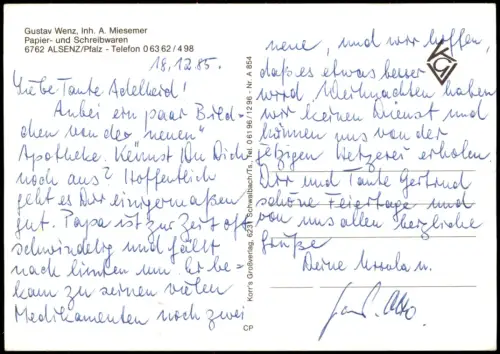 Gustav Wenz, Inh. A. Miesemer
Papier- und Schreibwaren
6762 ALSENZ/Pfalz - Telefon 0 63 62 / 4 98
18.12.85.
Liebe Tante Adelheid!
Anbei ein paar Bild-
chen von der "neuen"
Apotheke. Kennst Du Dich
noch aus? Hoffentlich
geht es Dir einigermaßen
gut. Papa ist zur Zeit oft
schwindelig und fällt
nach hinten um. Er be-
kam zu seinen vielen
Medikamenten noch zwei
CP
Korr's Großverlag, 6231 Schwalbach/Ts. Tel. 0 61 96 / 12 96 - Nr. A 854
neue, und wir hoffen,
daß es etwas besser
wird. Weihnachten haben
wir keinen Dienst und
können uns von der
jetzigen Hetzerei erholen.
Dir und Tante Gertrud
schöne Feiertage und
von uns allen herzliche
Grüße
Deine Ursula u.
Otto.